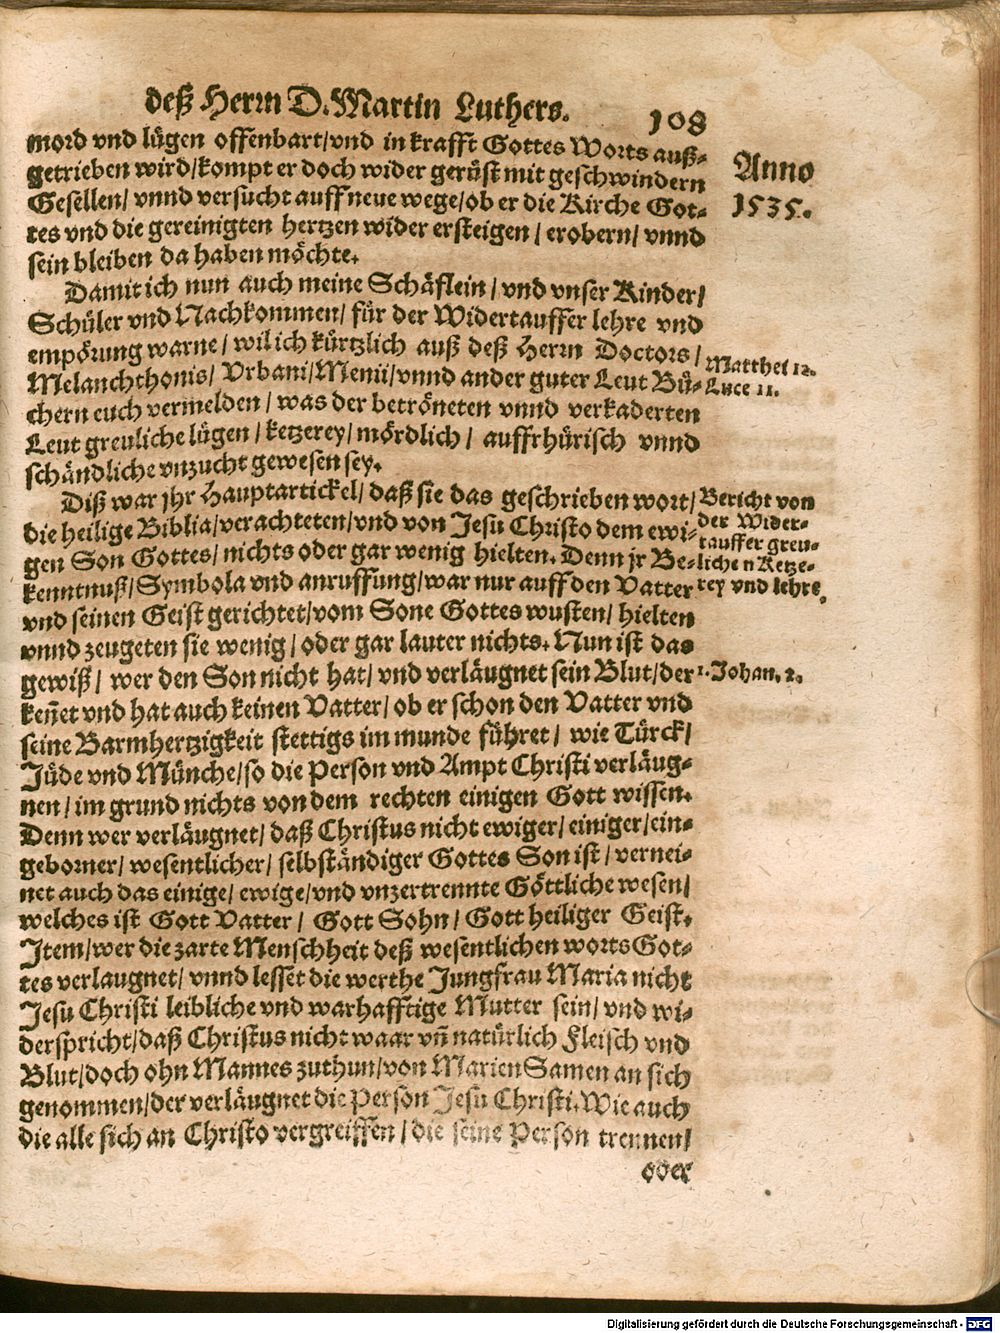 deß Herrn D. Martin Luthers. 108
mord vnd lügen offenbart/vnd in krafft Gottes Worts auß-
getrieben wird/kompt er doch wider gerüst mit geschwindern
Gesellen/ vnnd versucht auff neue wege/ob er die Kirche Got-
tes vnd die gereinigten hertzen wider ersteigen/ erobern/ vnnd
sein bleiben da haben möchte.
Anno
1535.
Damit ich nun auch meine Schäflein/ vnd vnser Kinder/
Schüler vnd Nachkommen/ für der Widertauffer lehre vnd
empörung warne/ wil ich kürtzlich auß deß Herrn Doctors/
Melanchthonis/ Vrbani/Menii/vnnd ander guter Leut Bü-
chern euch vermelden/ was der betröneten vnnd verkaderten
Leut greuliche lügen/ ketzerey/ mördlich/ auffrhürisch vnnd
schändliche vnzucht gewesen sey.
Matthei 12.
Luce 11.
Diß war jhr Hauptartickel/ daß sie das geschrieben wort/
die heilige Biblia/verachteten/vnd von Jesu Christo dem ewi-
gen Son Gottes/ nichts oder gar wenig hielten. Denn jr Be-
kenntnuß/Symbola vnd anruffung/war nur auff den Vatter
vnd seinen Geist gerichtet/vom Sone Gottes wusten/ hielten
vnnd zeugeten sie wenig/ oder gar lauter nichts. Nun ist das
gewiß/ wer den Son nicht hat/ vnd verläugnet sein Blut/der
keñet vnd hat auch keinen Vatter/ ob er schon den Vatter vnd
seine Barmhertzigkeit stettigs im munde führet/ wie Türck/
Jüde vnd Münche/so die Person vnd Ampt Christi verläug-
nen/ im grund nichts von dem rechten einigen Gott wissen.
Denn wer verläugnet/ daß Christus nicht ewiger/ einiger/ein-
geborner/ wesentlicher/ selbständiger Gottes Son ist/ vernei-
net auch das einige/ ewige/vnd vnzertrennte Göttliche wesen/
welches ist Gott Vatter/ Gott Sohn/ Gott heiliger Geist.
Item/wer die zarte Menschheit deß wesentlichen worts Got-
tes verlaugnet/ vnnd lesset die werthe Jungfrau Maria nicht
Jesu Christi leibliche vnd warhafftige Mutter sein/ vnd wi-
derspricht/daß Christus nicht waar vñ natürlich Fleisch vnd
Blut/doch ohn Mannes zuthun/von Marien Samen an sich
genommen/der verläugnet die Person Jesu Christi. Wie auch
die alle sich an Christo vergreiffen/ die seine Person trennen/
oder
Bericht von
der Wider-
tauffer greu-
lichen Ketze-
rey vnd lehre.
1. Johan. 2.
Digitalisierung gefördert durch die Deutsche Forschungsgemeinschaft - DFG